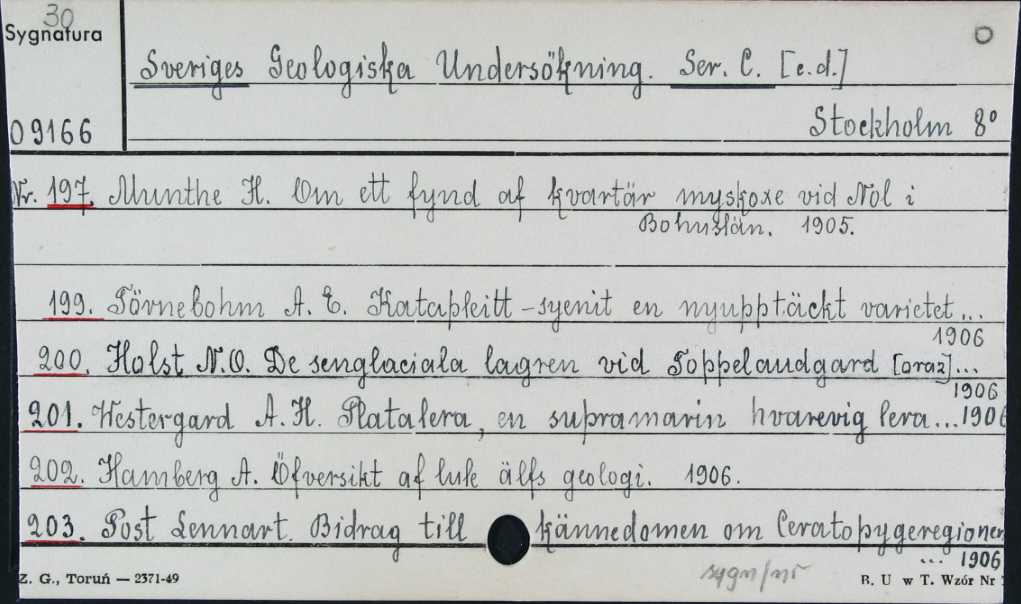 30
Sygnatura
09166
Sveriges Geologiska Undersökning. Ser. C. [c.d.]
Stockholm 8°
Nr. 197. Munthe H. Om ett fynd af kvartär myskoxe vid Nol i
Bohuslän. 1905.
199. Törnebohm A. E. Katapleitt-syenit en nyupptäckt varietet...
1906
200. Holst N.O. De senglaciala lagren vid Toppelaudgard [oraz]...
1906
201. Westergard A. H. Platalera, en supramarin hvarevig lera...1906
202. Hamberg A. Öfversikt af lule älfs geologi. 1906.
203. Post Lennart. Bidrag till kännedomen om Ceratopygeregionen
... 1906
Z. G., Toruń — 2371-49
sygn/nr
B. U w T. Wzór Nr